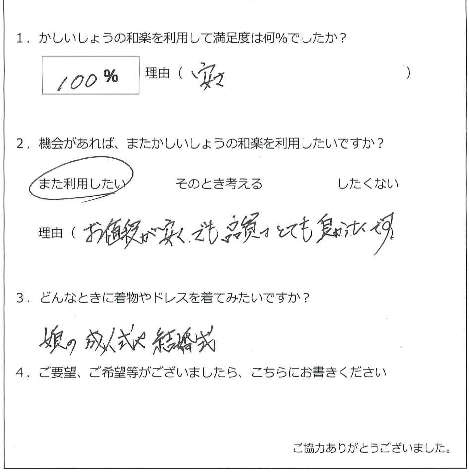 1．かしいしょうの和楽を利用して満足度は何%でしたか？
100 % 理由（ 安さ ）
2．機会があれば、またかしいしょうの和楽を利用したいですか？
また利用したい そのとき考える したくない
理由（ お値段が安く、でも品質はとても良いです。
3．どんなときに着物やドレスを着てみたいですか？
娘の成人式や結婚式
4．ご要望、ご希望等がございましたら、こちらにお書きください
ご協力ありがとうございました。